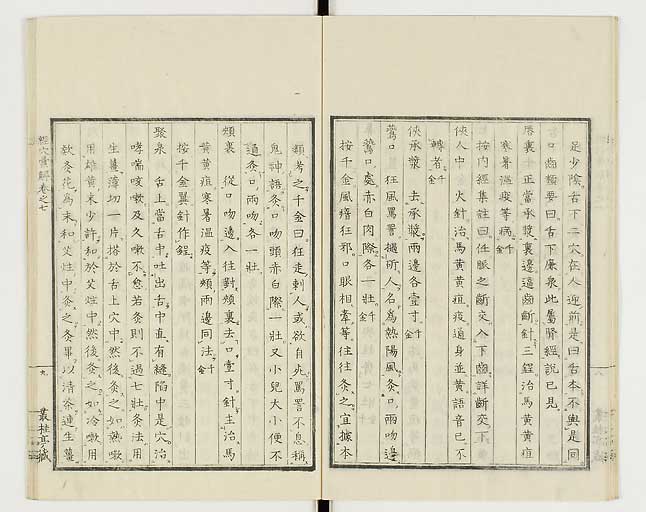 是少陰舌下二穴在人迎前是曰舌本不與是同
口齒類要曰舌下廉泉此屬腎經說已見
唇裏 正當承漿裏邊逼齒齗針三鍟治馬黃黃疸
寒暑溫疫等病千
按內經集註曰任脈之齗交入下齒詳齗交下
俠人中 火針治馬黃黃疸疫通身並黃語音已不
轉者千金
俠承漿 去承漿兩邊各壹寸千
鶯口 狂風罵詈撾斫人名為熱陽風灸口兩吻邊
鷰口處赤白肉際各一壯千金
按千金風癧狂邪口眼相牽等往往灸之宜據本
類考之千金曰狂走刺人或欲自死罵詈不息稱
鬼神語灸口吻頭赤白際一壯又小兒大小便不
通灸口兩吻各一壯
頰裏 從口吻邊入往對頰裏去口壹寸針主治馬
黃黃疸寒暑溫疫等頰兩邊同法千金
按千金翼針作鍟
聚泉 舌上當舌中吐出舌中直有縫陷中是穴治
哮喘咳嗽及久嗽不愈若灸則不過七壯灸法用
生薑薄切一片搭於舌上穴中然後灸之如熱嗽
用雄黃末少許和於艾炷中然後灸之如冷嗽用
欵冬花為末和艾炷中灸之灸畢以清茶連生薑
經穴彙解卷之七
九
叢桂亭藏